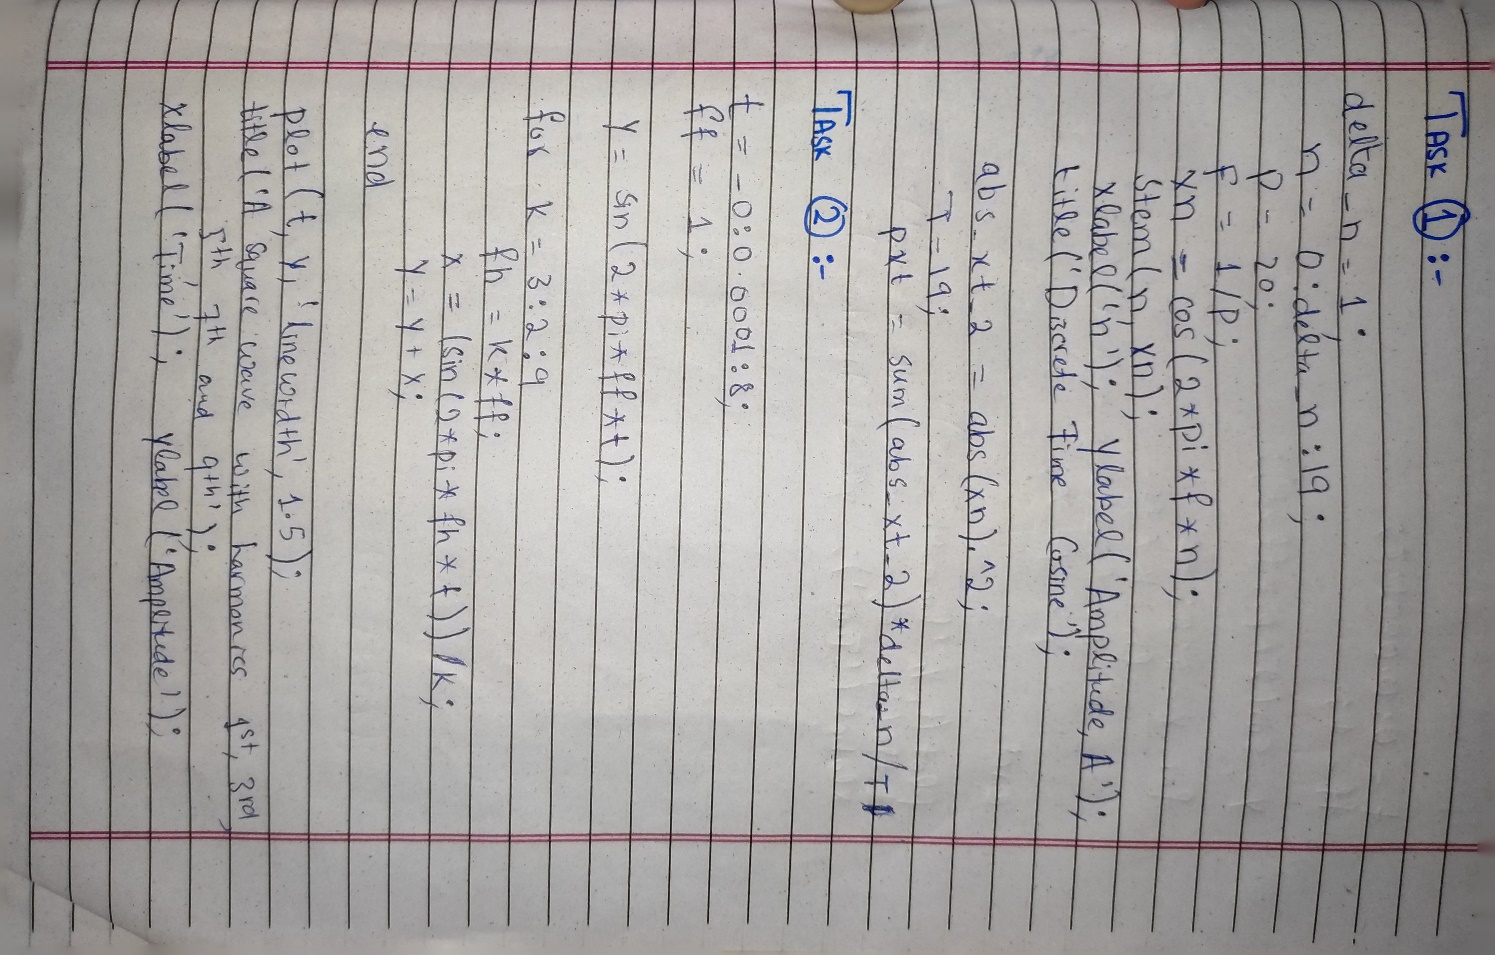 TASK ① :-
delta_n = 1;
n = 0:delta_n:19;
P = 20;
F = 1/P;
xn = cos(2*pi*f*n);
stem(n, xn);
xlabel('n'); ylabel('Amplitude, A');
title('Discrete Time Cosine');
abs_xt_2 = abs(xn).^2;
T = 19;
pxt = sum(abs_xt_2)*delta_n/T
TASK ② :-
t = -0:0.0001:8;
ff = 1;
y = sin(2*pi*ff*t);
for k = 3:2:9
fh = k*ff;
x = (sin(2*pi*fh*t))/k;
y = y + x;
end
plot(t, y, 'linewidth', 1.5);
title('A square wave with harmonics 1st, 3rd,
5th 7th and 9th');
xlabel('Time'); ylabel('Amplitude');